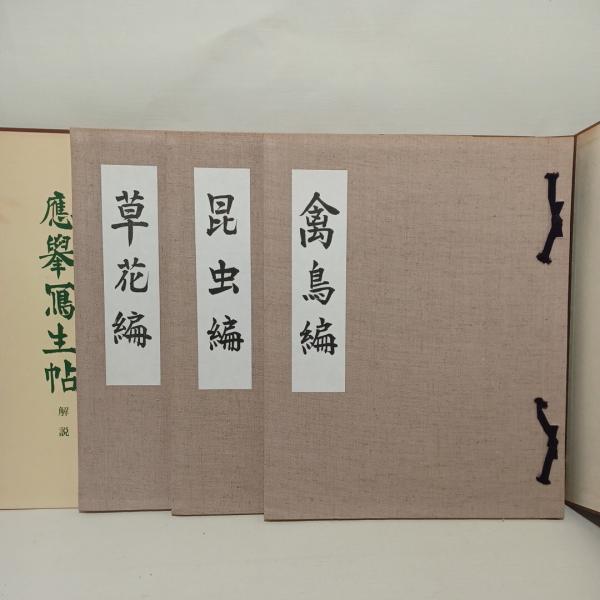 應擧寫生帖
解説
草花編
昆虫編
禽鳥編